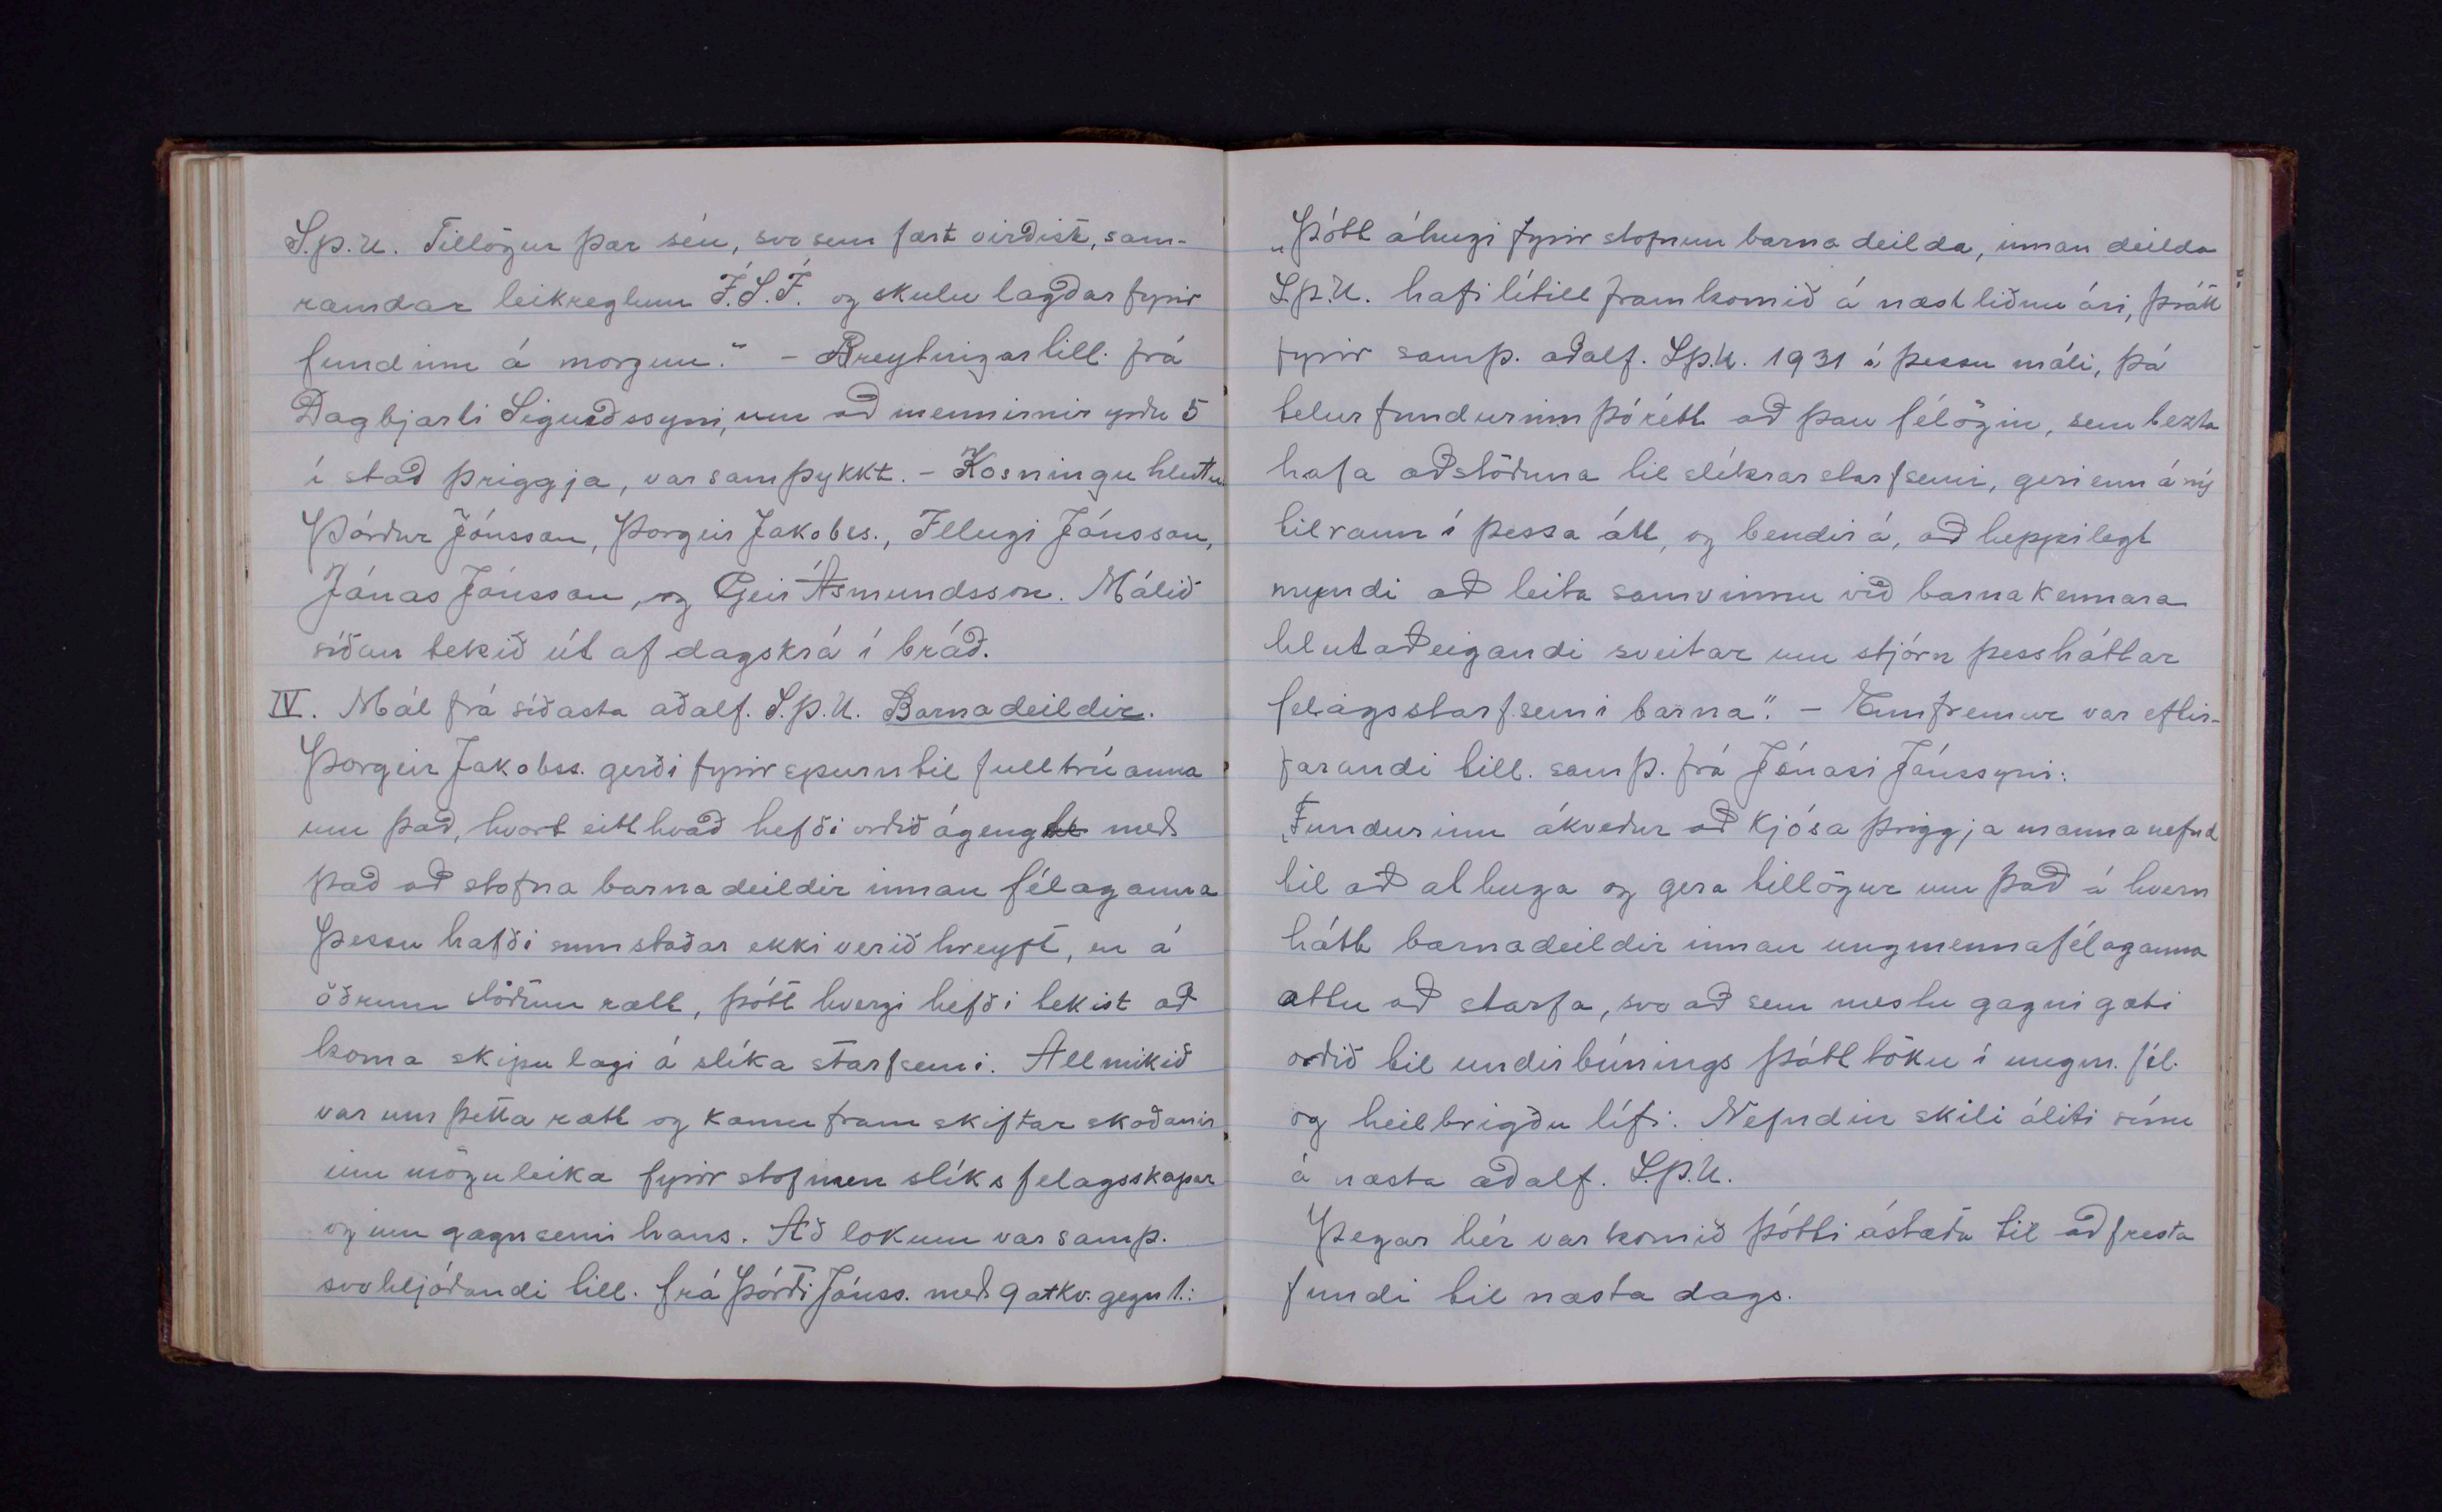 S.þ.U. Tillögur þær séu, svo sem fært virðist, sam-
ræmdar leikreglum Í.S.Í. og skulu lagðar fyrir
fundinn á morgun." - Breytingartill. frá
Dagbjarti Sigurðssyni, um að mennirnir yrðu 5
í stað þriggja, var samþykkt. - Kosningu hlutu
Þórður Jónsson, Þorgeir Jakobss., Illugi Jónsson,
Jónas Jónsson, og Geir Ásmundsson. Málið
síðan tekið út af dagskrá í bráð.
IV. Mál frá síðasta aðalf. S.þ.U. Barnadeildir.
Þorgeir Jakobss. gerði fyrirspurn til fulltrúanna
um það, hvort eitthvað hefði orðið ágengt með
það að stofna barnadeildir innan félaganna
Þessu hafði sumstaðar ekki verið hreyft, en á
öðrum stöðum rætt, þótt hvergi hefði tekist að
koma skipulagi á slíka starfsemi. Allmikið
var um þetta rætt og komu fram skiftar skoðanir
um möguleika fyrir stofnun slíks felagsskapar
og um gagnsemi hans. Að lokum var samþ.
svohljóðandi till. frá Þórði Jónss. með 9 atkv. gegn 1.:
„Þótt áhugi fyrir stofnun barnadeilda, innan deilda
S.þ.U. hafi lítill fram komið á næstliðnu ári, þrátt
fyrir samþ. aðalf. S.þ.U. 1931 á þessu máli, þá
telur fundurinn þó rétt að þau félögin, sem bezta
hafa aðstöðuna til slíkrar starfsemi, geri enn á ný
tilraun í þessa átt, og bendir á, að heppilegt
myndi að leita samvinnu við barnakennara
hlutaðeigandi sveitar um stjórn þessháttar
felagsstarfsemi barna". - Ennfremur var eftir-
farandi till. samþ. frá Jónasi Jónssyni:
„Fundurinn ákveður að kjósa þriggja manna nefnd
til að athuga og gera tillögur um það á hvern
hátt barnadeildir innan ungmennafélaganna
ættu að starfa, svo að sem mestu gagni gæti
orðið til undirbúnings þátttöku í ungm. fél.
og heilbrigðu lífi. Nefndin skili áliti sínu
á næsta aðalf. S.þ.U.
Þegar hér var komið þótti ástæða til að fresta
fundi til næsta dags.